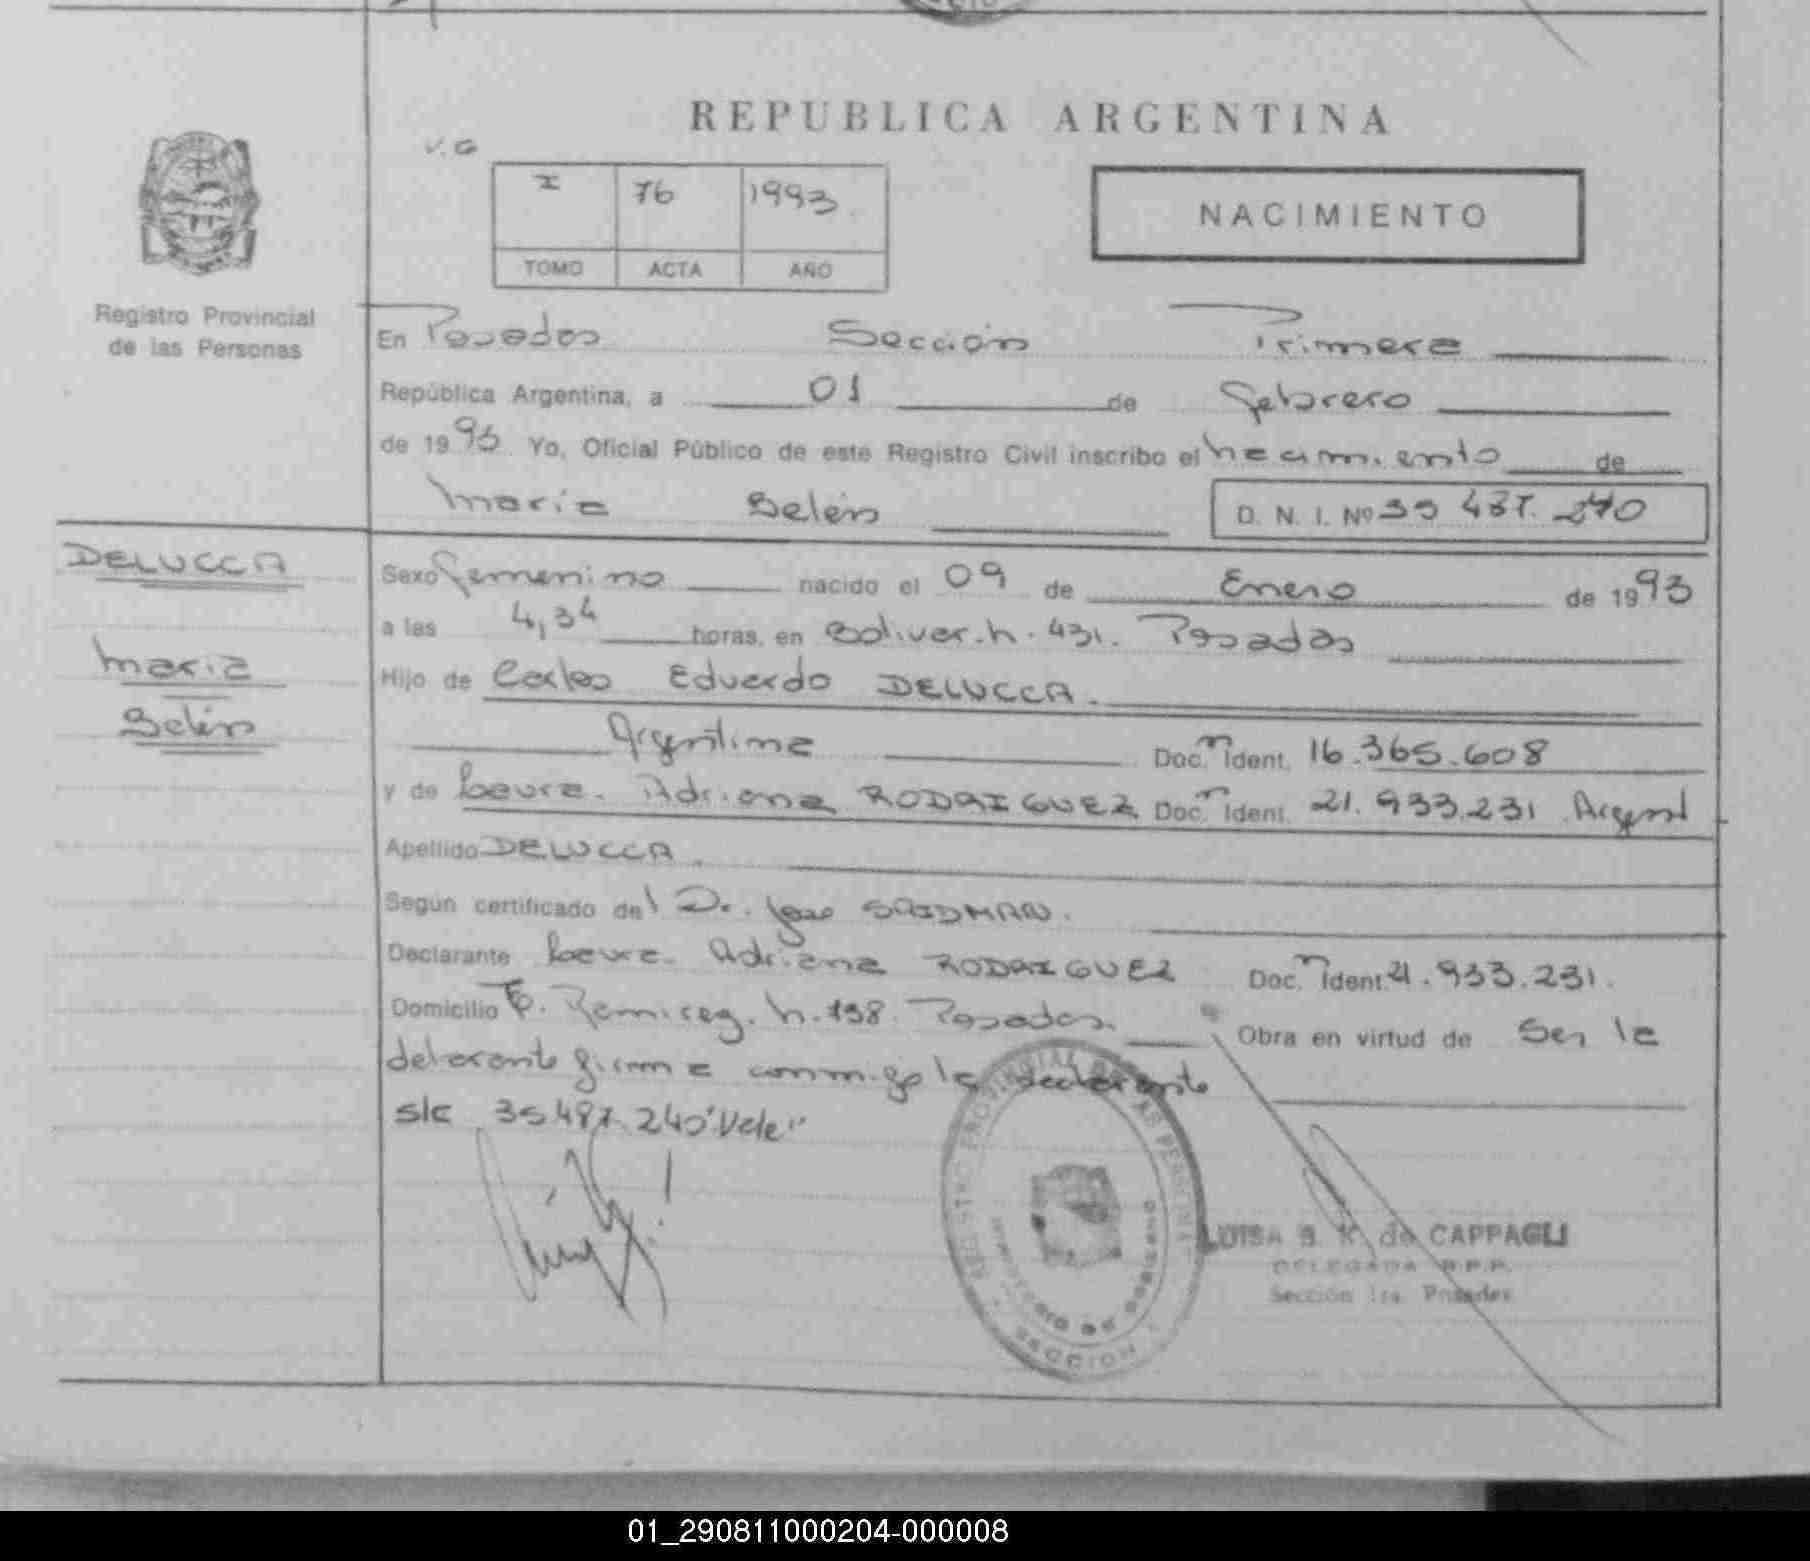 REPUBLICA ARGENTINA
V.G
I 76 1993
TOMO ACTA AÑO
NACIMIENTO
Registro Provincial
de las Personas
En Posadas Sección Primera
República Argentina, a 01 de Febrero
de 1993 Yo, Oficial Público de este Registro Civil inscribo el nacimiento de
María Belén D. N. I. Nº
DELUCCA
María
Belén
Sexo femenino nacido el 09 de Enero de 1993
a las 4,34 horas, en Bolivar. n. 431. Posadas
Hijo de Carlos Eduardo DELUCCA.
Argentina Doc. n Ident. 16.365.608
y de Laura. Adriana RODRIGUEZ Doc. n Ident. 21.933.231 Argent
Apellido DELUCCA.
Según certificado del Dr. Jose SAIDMAN.
Declarante Laura. Adriana RODRIGUEZ Doc. n Ident. 21.933.231.
Domicilio Posadas. Obra en virtud de Ser la
firma conmigo la declarante
s/c "Vale"
REGISTRO PROVINCIAL DE LAS PERSONAS
MINISTERIO DE GOBIERNO
SECCION
LUISA de CAPPAGLI
DELEGADA R.P.P.
Sección 1ra. Posadas
01_290811000204-000008